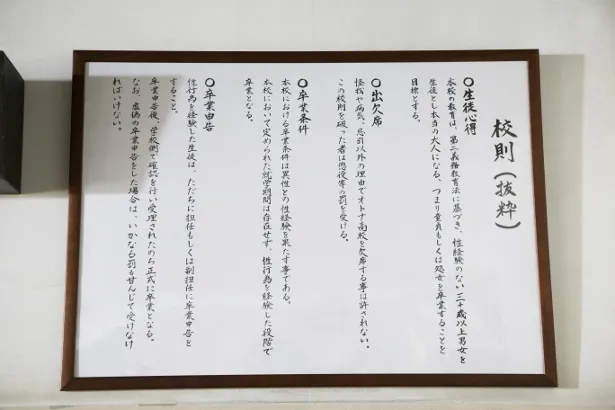 校則(抜粋)
○生徒心得
本校の教育は、第二義務教育法に基づき、性経験のない三十歳以上男女を
生徒とし本当の大人になる、つまり童貞もしくは処女を卒業することを
目標とする。
○出欠席
怪我や病気、忌引以外の理由でオトナ高校を欠席する事は許されない。
この校則を破った者は懲役等の罰を受ける。
○卒業条件
本校における卒業条件は異性との性経験を果たす事である。
本校において定められた就学期間は存在せず、性行為を経験した段階で
卒業となる。
○卒業申告
性行為を経験した生徒は、ただちに担任もしくは副担任に卒業申告を
すること。
卒業申告後、学校側で確認を行い受理されたのち正式に卒業となる。
なお、虚偽の卒業申告をした場合は、いかなる罰も甘んじて受けなけ
ればいけない。